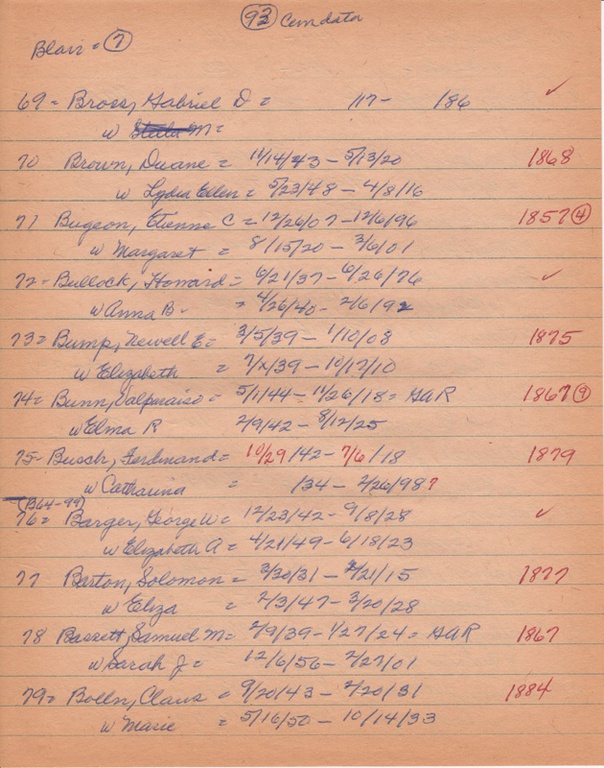 (93) Cem data
Blair = (7)
69 = Bross, Gabriel D = 117- 186 ✓
w Stella M =
70 Brown, Duane = 11/14/43 - 5/13/20 1868
w Lydia Ellen = 5/23/48 - 4/8/16
71 Bugeon, Etienne C = 12/26/07 - 12/6/96 1857 (4)
w Margaret = 8/15/20 - 3/6/01
72 = Bullock, Howard = 6/21/37 - 6/26/76 ✓
w Anna B - = 4/26/40 - 2/6/92
73 = Bump, Newell E = 3/5/39 - 1/10/08 1875
w Elizabeth = 7/x/39 - 10/17/10
74 = Bunn, Valparaiso = 5/1/44 - 11/26/18 = GAR 1867 (9)
w Elma R 2/9/42 - 8/12/25
75 - Bussh, Ferdinand = 10/29/42 - 7/6/18 1879
w Catharina = /34 - 2/26/98?
(B64-99)
76 = Barger, George W = 12/23/42 - 9/8/28 ✓
w Elizabeth A = 4/21/49 - 6/18/23
77 Barton, Solomon = 3/20/31 - 2/21/15 1877
w Eliza = 2/3/47 - 3/20/28
78 Bassett, Samuel M = 2/9/39 - 1/27/24 = GAR 1867
w Sarah J = 12/6/56 - 2/27/01
79 = Bolln, Claus = 9/20/43 - 2/20/31 1884
w Marie = 5/16/50 - 10/14/33